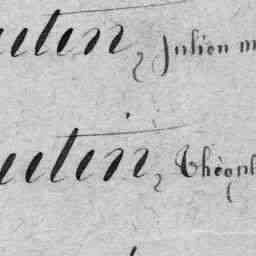 utin, Julien m
utin, Théoph